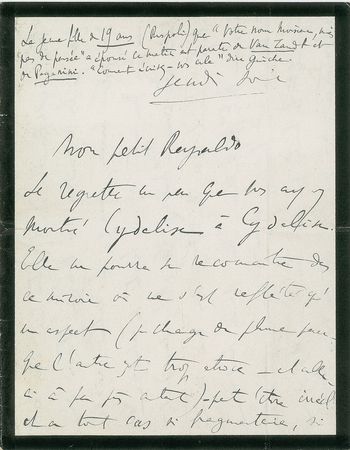 La jeune fille de 19 ans (Ruspoli) que "Votre nom Monsieur, mais
pas de pensée" a épousé ce matin est parente de Van Zandt et
de Paganini. "Comment écrivez-vous cela" dira Guiche.
Jeudi soir
Mon petit Reynaldo
Je regrette un peu que vous ayez
montré Cydalise à Cydalise.
Elle ne pourra se reconnaître dans
ce miroir où ne s'est reflété qu'
un aspect (je change de plume parce
que l'autre est trop atroce – et celle
ci à peu près autant) – peut'être
et en tout cas si fragmentaire, si